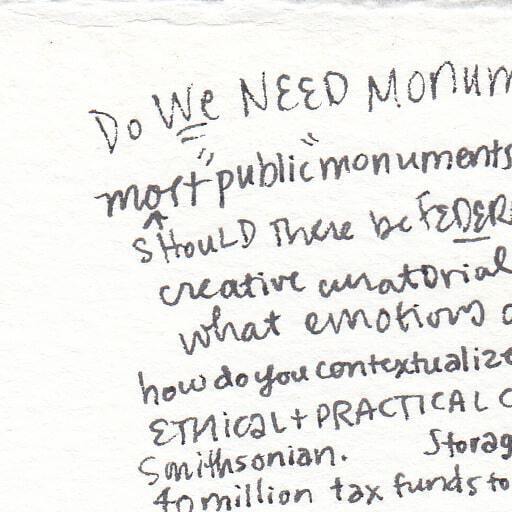 Do We NEED MONUM
most "public" monuments
SHOULD There be FEDER
creative curatorial
what emotions
how do you contextualize
ETHICAL + PRACTICAL C
Smithsonian. Storag
40 million tax funds to